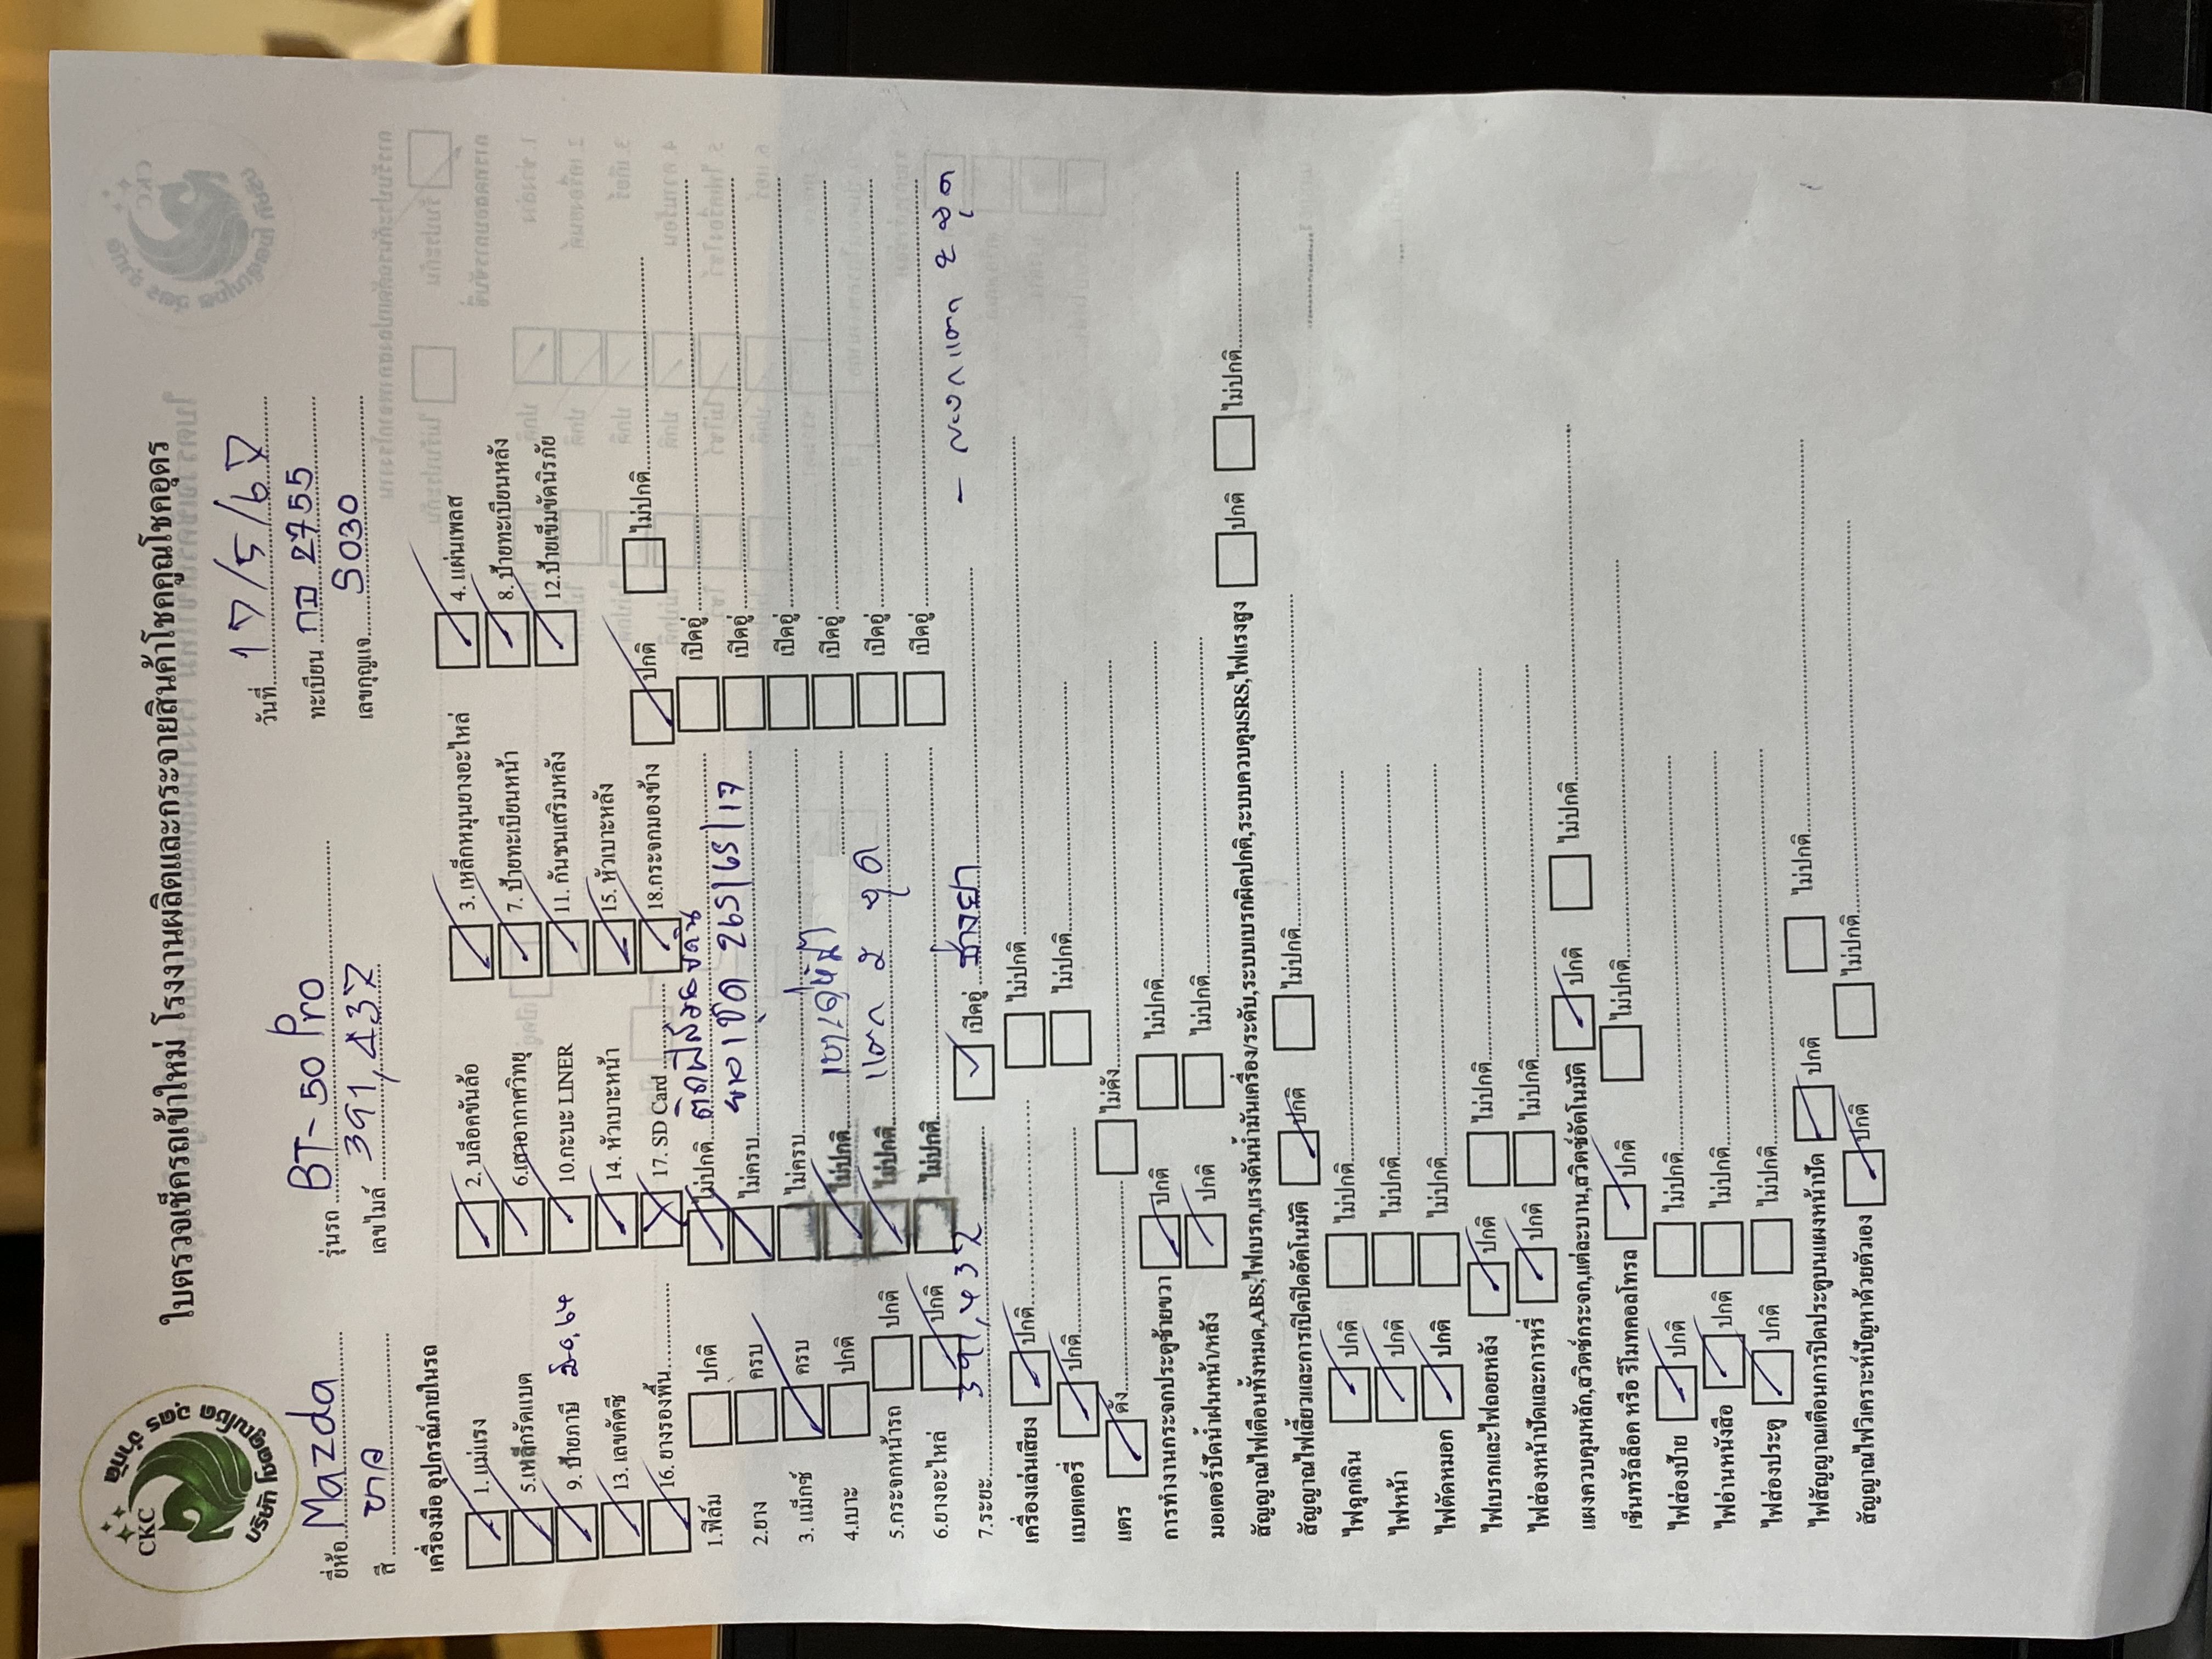 CKC
บริษัท โชคคูณโชค อุดร จำกัด
ใบตรวจเช็ครถเข้าใหม่ โรงงานผลิตและกระจายสินค้าโชคคูณโชคอุดร
วันที่ 17/5/67
ยี่ห้อ Mazda รุ่นรถ BT-50 Pro ทะเบียน 2755
สี เลขไมล์ 391,437 เลขกุญแจ 5030
เครื่องมือ อุปกรณ์ภายในรถ
1. แม่แรง 2. บล็อคขันล้อ 3. เหล็กหมุนยางอะไหล่ 4. แผ่นเพลส
5.เหล็กรัดแบต 6.เสาอากาศวิทยุ 7. ป้ายทะเบียนหน้า 8. ป้ายทะเบียนหลัง
9. ป้ายภาษี 10.กระบะ LINER 11. กันชนเสริมหลัง 12.ป้ายเข็มขัดนิรภัย
13. เลขคัตซี 14. หัวเบาะหน้า 15. หัวเบาะหลัง
16. ยางรองพื้น 17. SD Card 18.กระจกมองข้าง ปกติ ไม่ปกติ
1.ฟิล์ม ปกติ ไม่ปกติ เปิดอยู่
2.ยาง ครบ ไม่ครบ 265/65/17 เปิดอยู่
3. แม็กซ์ ครบ ไม่ครบ เปิดอยู่
4.เบาะ ปกติ ไม่ปกติ เปิดอยู่
5.กระจกหน้ารถ ปกติ ไม่ปกติ แตก 2 จุด เปิดอยู่
6.ยางอะไหล่ ปกติ ไม่ปกติ เปิดอยู่
7.ระยะ 391,437 เปิดอยู่
เครื่องเล่นเสียง ปกติ ไม่ปกติ
แบตเตอรี่ ปกติ ไม่ปกติ
แตร ดัง ไม่ดัง
การทำงานกระจกประตูซ้ายขวา ปกติ ไม่ปกติ
มอเตอร์ปัดน้ำฝนหน้า/หลัง ปกติ ไม่ปกติ
สัญญาณไฟเตือนทั้งหมด,ABS,ไฟเบรก,แรงดันน้ำมันเครื่อง/ระดับ,ระบบเบรกผิดปกติ,ระบบควบคุมSRS,ไฟแรงสูง ปกติ ไม่ปกติ
สัญญาณไฟเลี้ยวและการเปิดปิดอัตโนมัติ ปกติ ไม่ปกติ
ไฟฉุกเฉิน ปกติ ไม่ปกติ
ไฟหน้า ปกติ ไม่ปกติ
ไฟตัดหมอก ปกติ ไม่ปกติ
ไฟเบรกและไฟถอยหลัง ปกติ ไม่ปกติ
ไฟส่องหน้าปัดและการหรี่ ปกติ ไม่ปกติ
แผงควบคุมหลัก,สวิตช์กระจก,แต่ละบาน,สวิตช์อัตโนมัติ ปกติ ไม่ปกติ
เซ็นทรัลล็อค หรือ รีโมทคอลโทรล ปกติ ไม่ปกติ
ไฟส่องป้าย ปกติ ไม่ปกติ
ไฟอ่านหนังสือ ปกติ ไม่ปกติ
ไฟส่องประตู ปกติ ไม่ปกติ
ไฟสัญญาณเตือนการปิดประตูบนแผงหน้าปัด ปกติ ไม่ปกติ
สัญญาณไฟวิเคราะห์ปัญหาด้วยตัวเอง ปกติ ไม่ปกติ